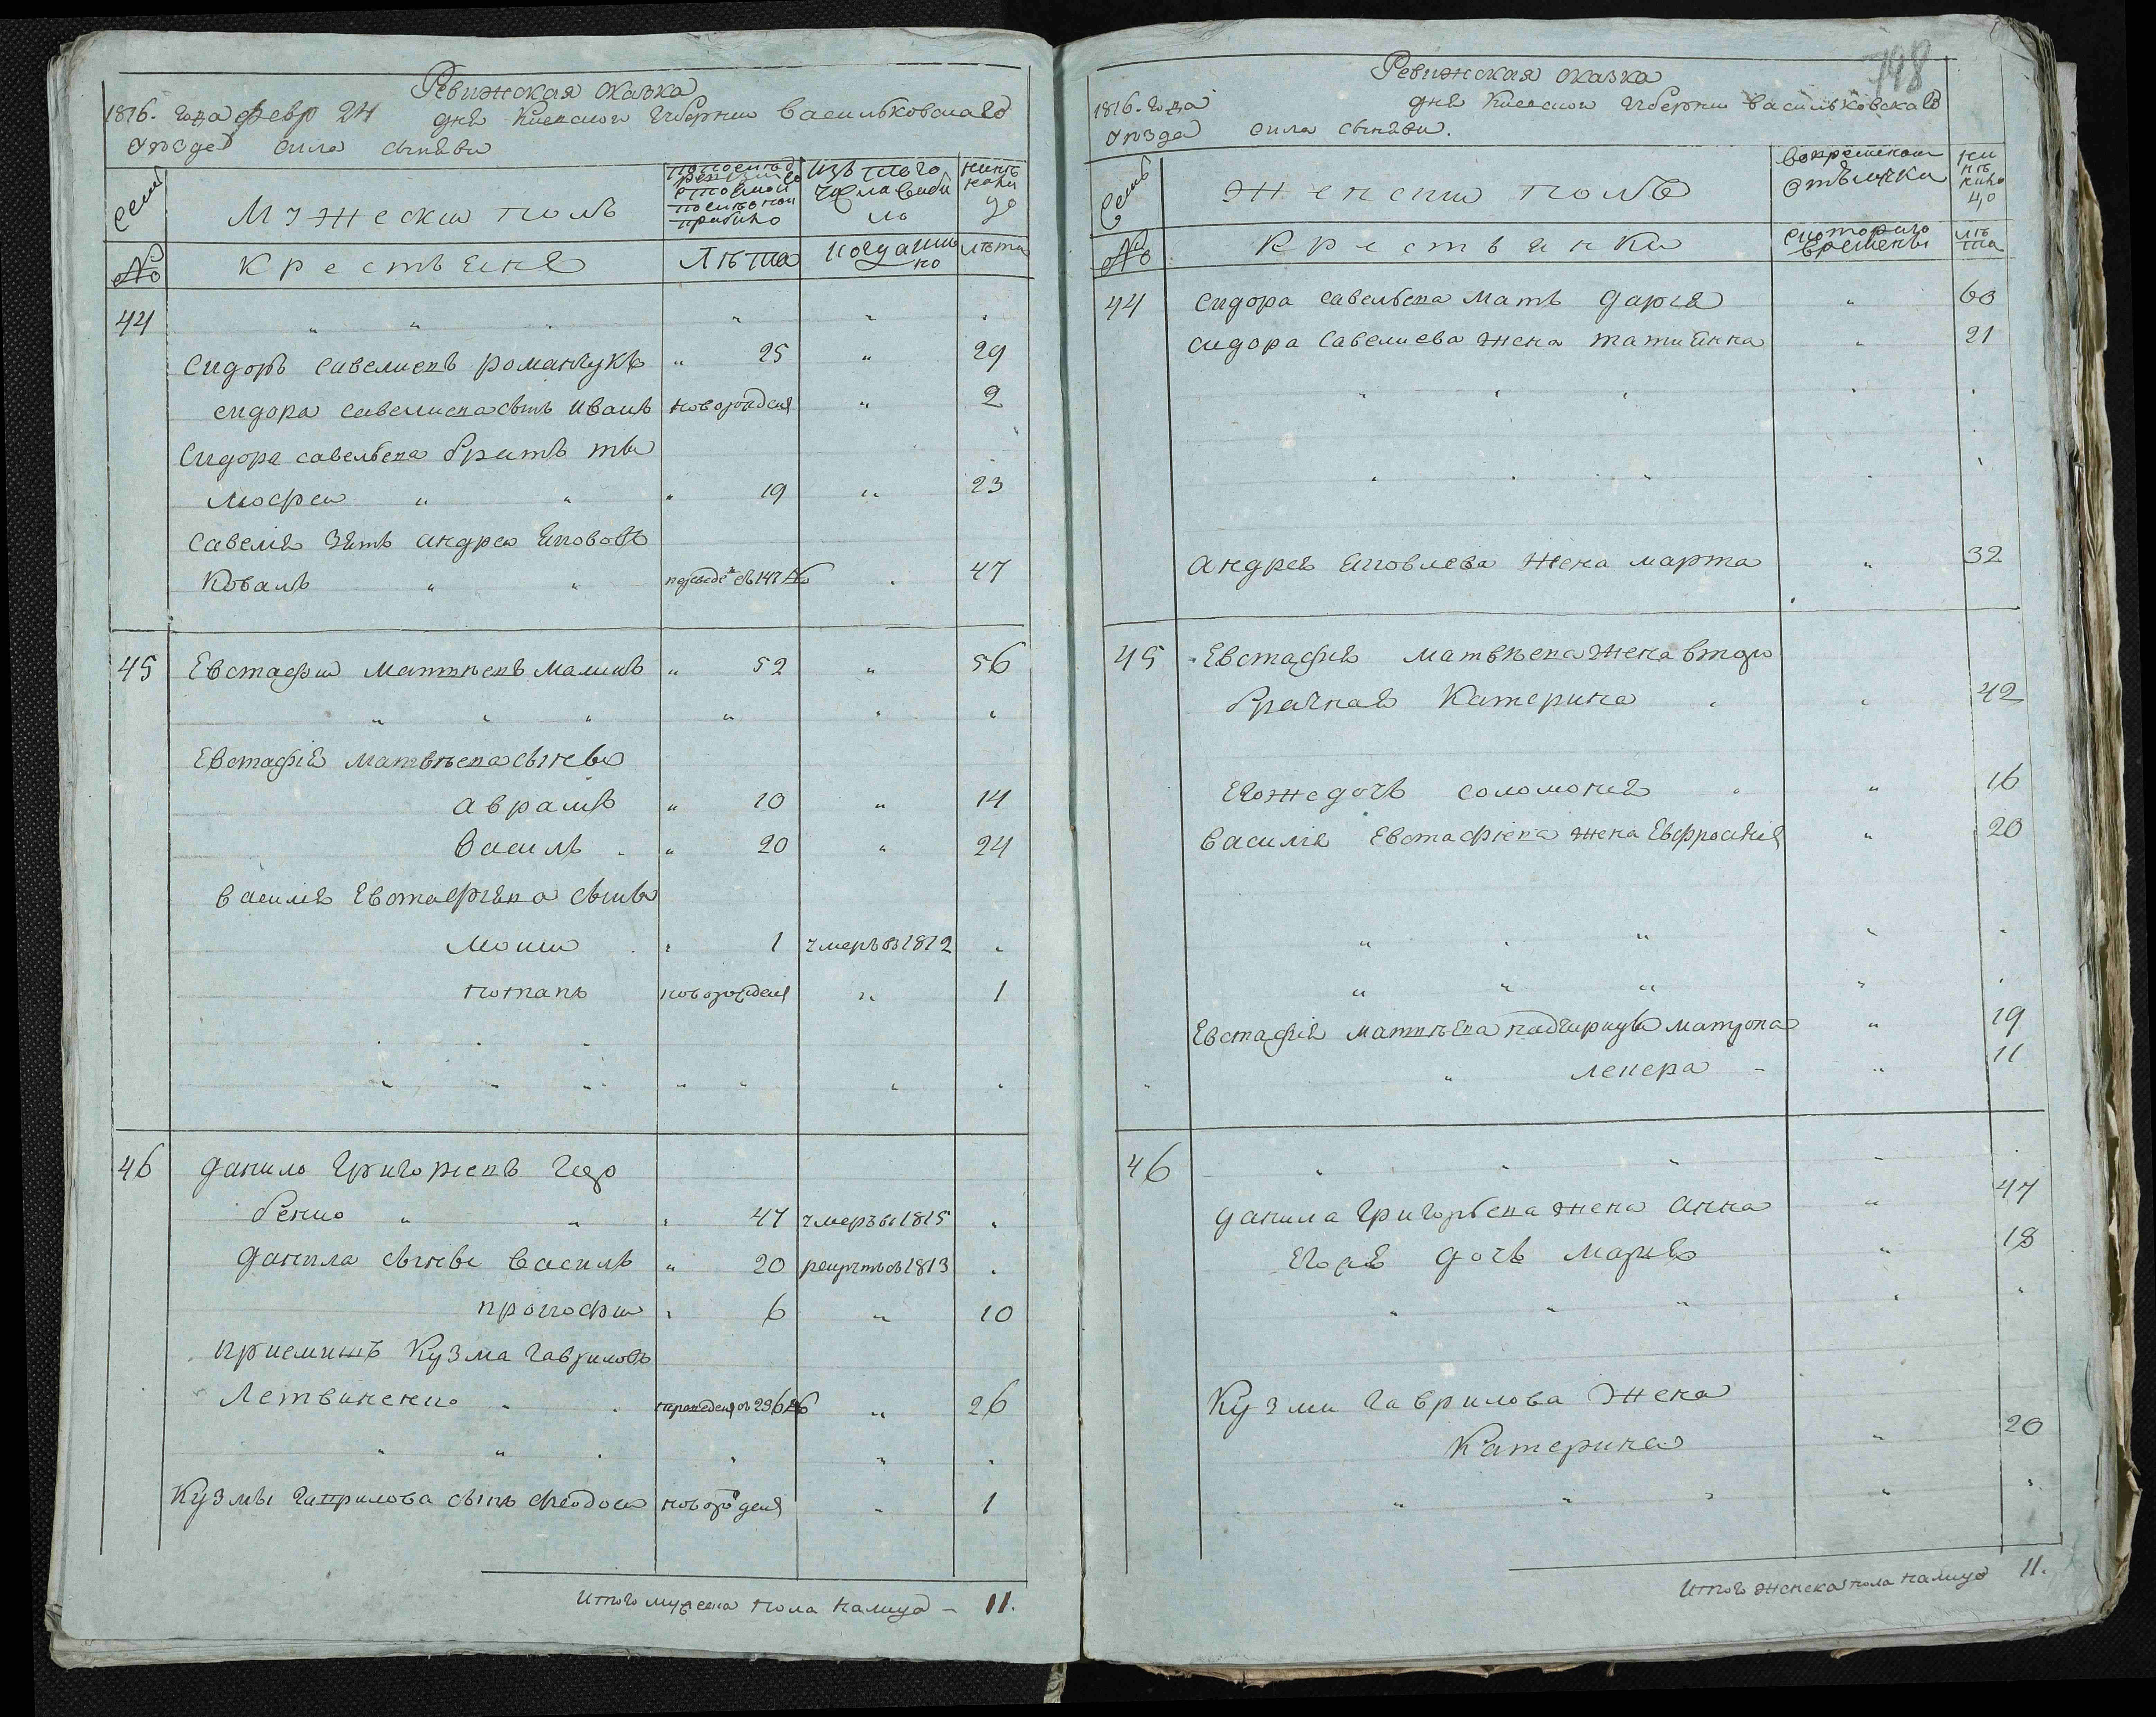 Ревижская сказка
1816. года февр 24 дня Киевской Губернии васильковскаго
уѣзда села сыняви
Семьи
Мужески полъ
По последней ревизии состояло и после оной прибыло
Изъ того числа выбыло
Нынѣ на лицо
№
Крестьяня
Лѣта
Когда имянно
лѣта
44 " " " " " "
Сидоръ савелиевъ романчукъ " 25 " 29
сидора савелиева сынъ иванъ новорожденъ " 2
Сидора савельева братъ ти
мофей " " " 19 " 23
Савелия зять андрей якововъ
Коваль " " переведенъ съ 147 № " 47
45 Евстафий матвѣевъ малишъ " 52 " 56
" " " " " "
Евстафия матвѣева сыневе
аврамъ " 10 " 14
василь " 20 " 24
василия Евстафиева сынъ
моисей " 1 умеръ въ 1812 "
потапъ новорожденъ " 1
" " "
" " " " " " "
46 данило григориевъ гидо
ренко " " " 47 умеръ въ 1815 "
данила сыневе василь " 20 рекрутъ въ 1813 "
прокофий " 6 " 10
приемишъ Кузма гавриловъ
Летвиненко " " переведенъ съ 296 № " 26
" " " " " "
Кузмы гаврилова сынъ феодосий новорожденъ " 1
Итого мужеска пола налицо – 11.
798
Ревижская сказка
1816. года дня Киевской губернии васильковскаго
уѣзда села сыняви.
Семьи
женски полъ
во временной отлучки
Нынѣ на лицо
№
Крестьянки
с котораго времены
лѣта
44 Сидора савельева мать дария " 60
сидора Савелиева жена татиянна " 21
" " " " "
" " " " "
андрея яковлева жена марта " 32
45 Евстафия матвѣева жена второ
брачная Катерина " " 42
Его же дочь соломония " " 16
василия Евстафиева жена Евфросиния " 20
" " " " "
" " " " "
Евстафия матвѣева падчирицы матрона " 19
" " " " " 11
46 " " " " "
данила григорьева жена анна " 47
Его же дочь мария " 18
" " " " "
Кузми гаврилова жена
Катерина " 20
" " " " "
Итого женска пола налицо 11.